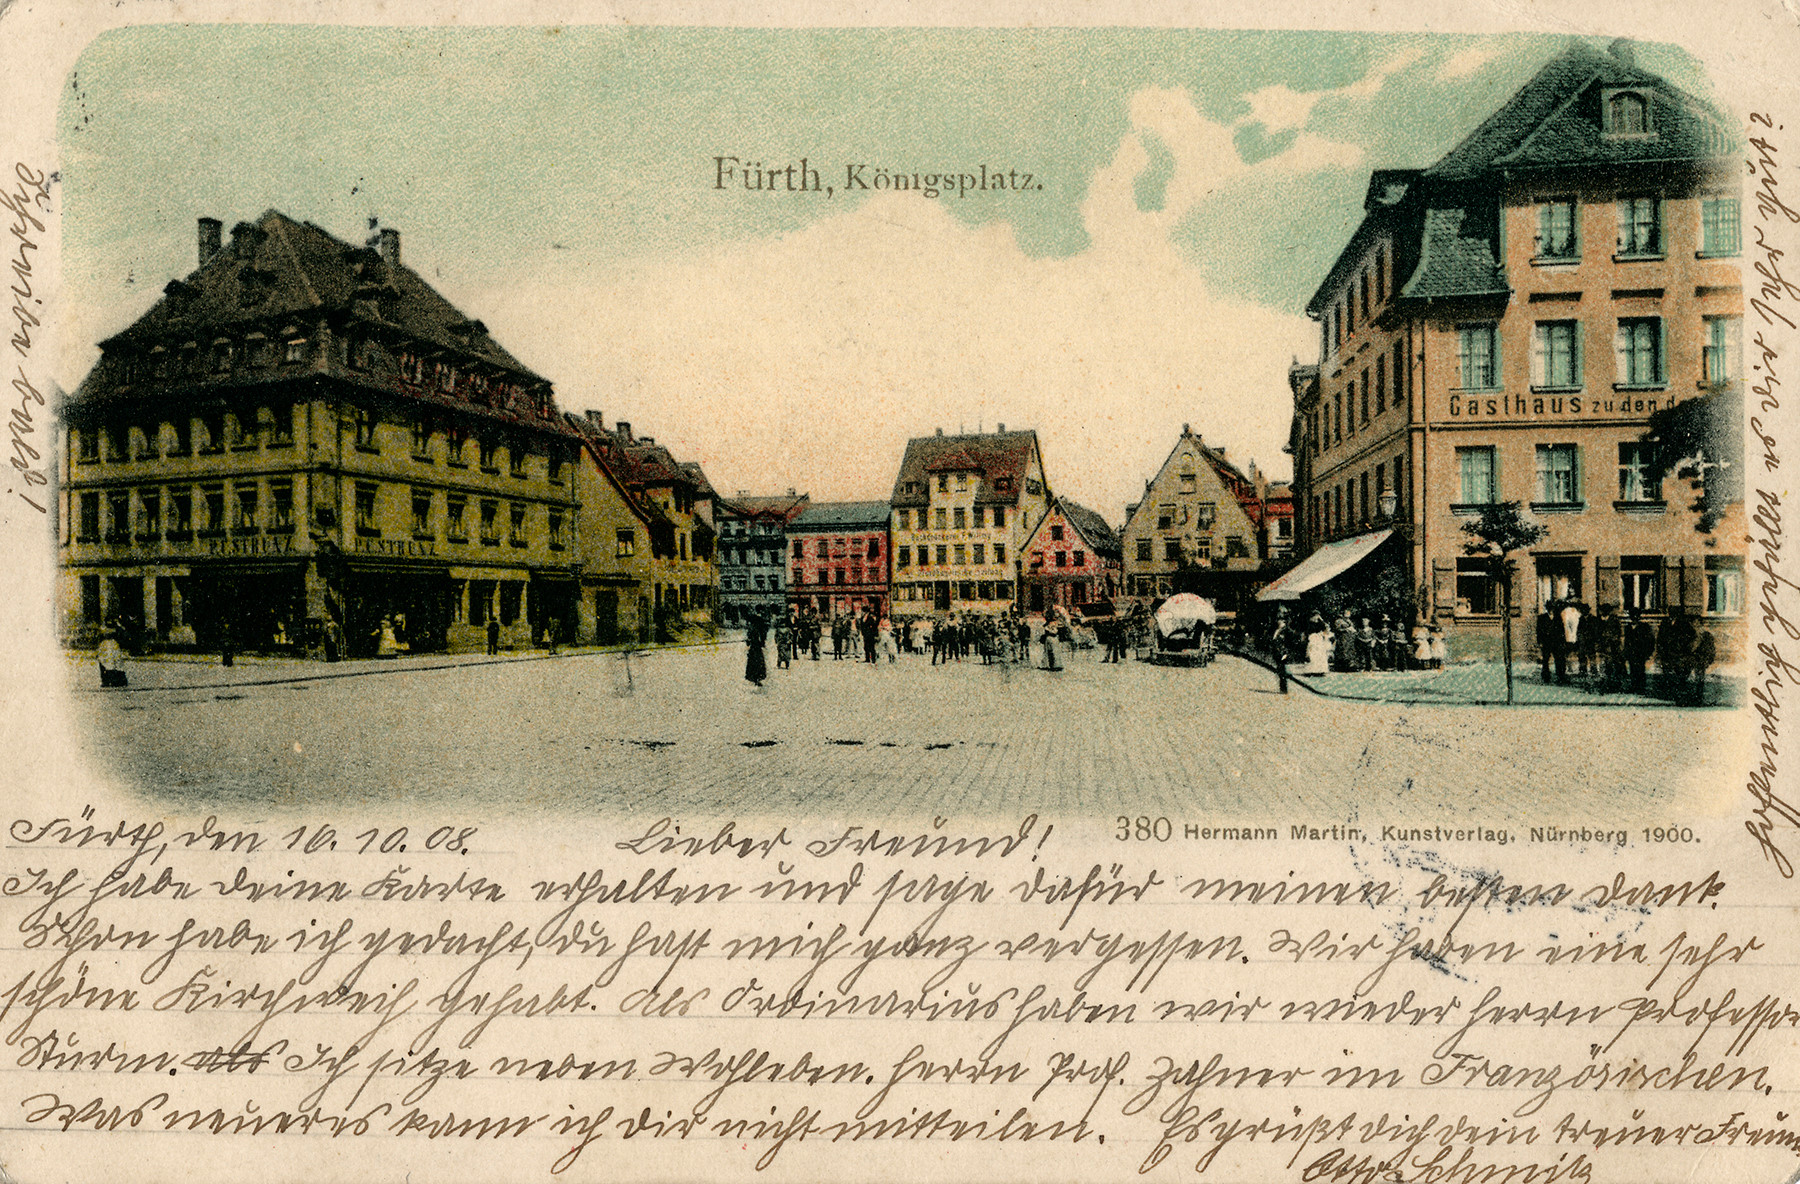 Fürth, Königsplatz.
Gasthaus zu den d
P.C. STRUNZ
P.C. STRUNZ
380 Hermann Martin, Kunstverlag, Nürnberg 1900.
Fürth, den 16. 10. 08. Lieber Freund!
Ich habe deine Karte erhalten und sage dafür meinen besten Dank.
Schon habe ich gedacht, du hast mich ganz vergessen. Wir haben eine sehr
schöne Kirchweih gehabt. Als Ordinarius haben wir wieder Herrn Professor
Sturm. als Ich sitze neben Wohleben. Herrn Prof. Zahner im Französischen.
Was neueres kann ich dir nicht mitteilen. Es grüßt dich dein treuer Freund
Otto Schmitz
Schreibe bald!